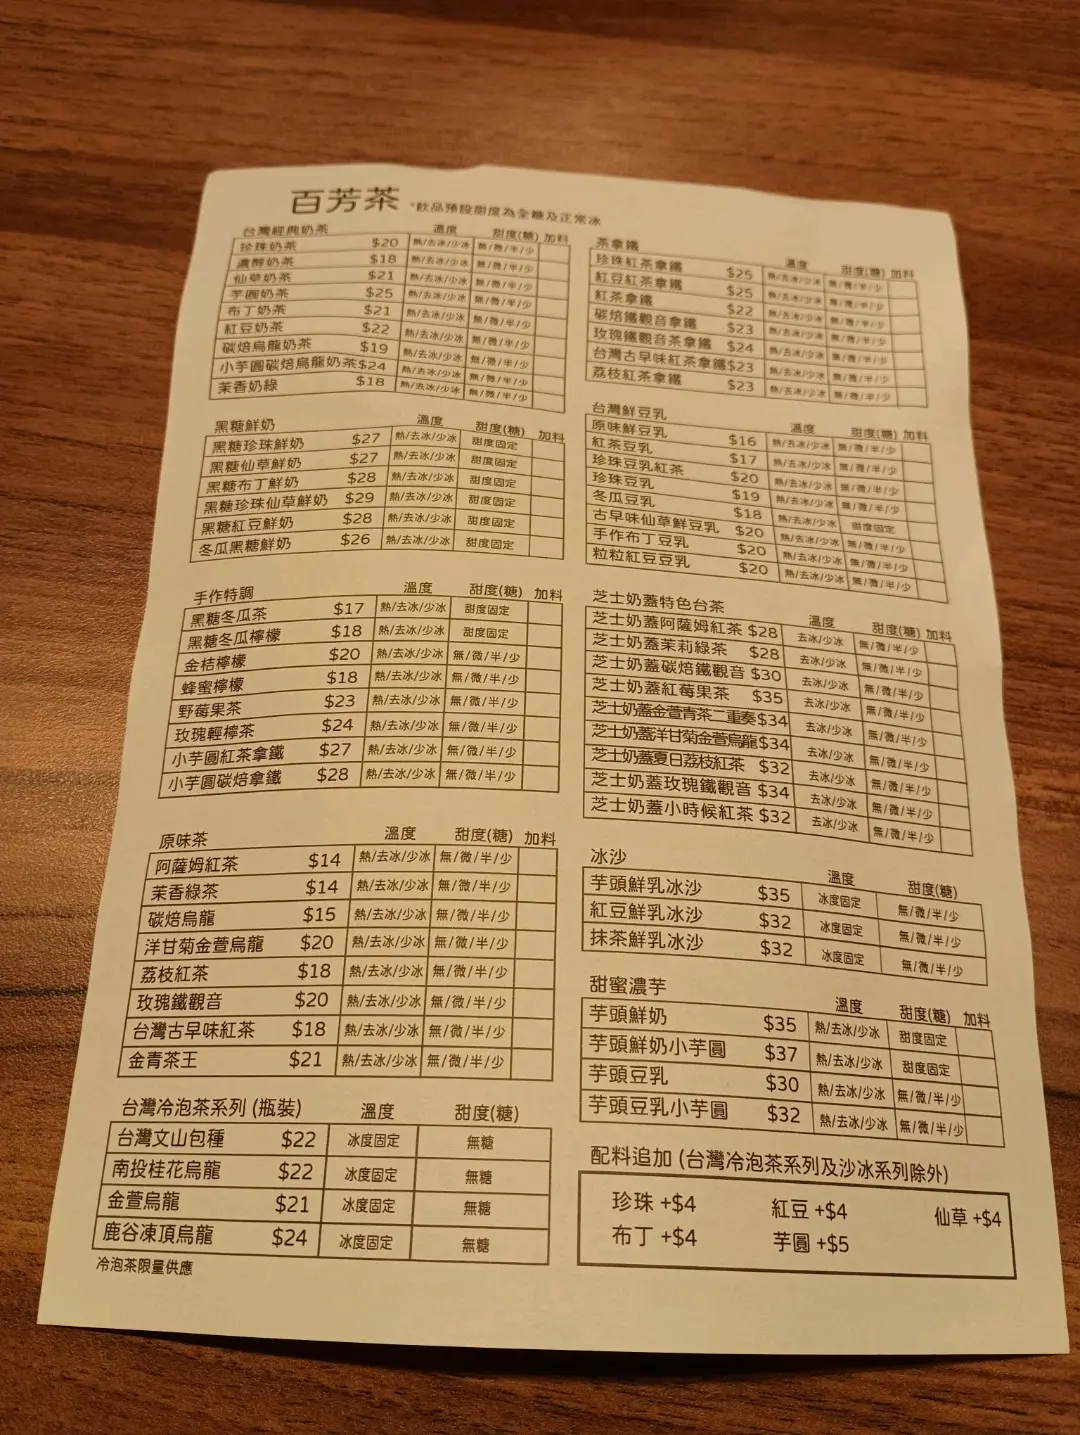 百芳茶 *飲品預設甜度為全糖及正常冰
台灣經典奶茶 溫度 甜度(糖) 加料
珍珠奶茶 $20 熱/去冰/少冰 無/微/半/少
濃醇奶茶 $18 熱/去冰/少冰 無/微/半/少
仙草奶茶 $21 熱/去冰/少冰 無/微/半/少
芋圓奶茶 $25 熱/去冰/少冰 無/微/半/少
布丁奶茶 $21 熱/去冰/少冰 無/微/半/少
紅豆奶茶 $22 熱/去冰/少冰 無/微/半/少
碳焙烏龍奶茶 $19 熱/去冰/少冰 無/微/半/少
小芋圓碳焙烏龍奶茶$24 熱/去冰/少冰 無/微/半/少
茉香奶綠 $18 熱/去冰/少冰 無/微/半/少
黑糖鮮奶 溫度 甜度(糖) 加料
黑糖珍珠鮮奶 $27 熱/去冰/少冰 甜度固定
黑糖仙草鮮奶 $27 熱/去冰/少冰 甜度固定
黑糖布丁鮮奶 $28 熱/去冰/少冰 甜度固定
黑糖珍珠仙草鮮奶 $29 熱/去冰/少冰 甜度固定
黑糖紅豆鮮奶 $28 熱/去冰/少冰 甜度固定
冬瓜黑糖鮮奶 $26 熱/去冰/少冰 甜度固定
手作特調 溫度 甜度(糖) 加料
黑糖冬瓜茶 $17 熱/去冰/少冰 甜度固定
黑糖冬瓜檸檬 $18 熱/去冰/少冰 甜度固定
金桔檸檬 $20 熱/去冰/少冰 無/微/半/少
蜂蜜檸檬 $18 熱/去冰/少冰 無/微/半/少
野莓果茶 $23 熱/去冰/少冰 無/微/半/少
玫瑰輕檸茶 $24 熱/去冰/少冰 無/微/半/少
小芋圓紅茶拿鐵 $27 熱/去冰/少冰 無/微/半/少
小芋圓碳焙拿鐵 $28 熱/去冰/少冰 無/微/半/少
原味茶 溫度 甜度(糖) 加料
阿薩姆紅茶 $14 熱/去冰/少冰 無/微/半/少
茉香綠茶 $14 熱/去冰/少冰 無/微/半/少
碳焙烏龍 $15 熱/去冰/少冰 無/微/半/少
洋甘菊金萱烏龍 $20 熱/去冰/少冰 無/微/半/少
荔枝紅茶 $18 熱/去冰/少冰 無/微/半/少
玫瑰鐵觀音 $20 熱/去冰/少冰 無/微/半/少
台灣古早味紅茶 $18 熱/去冰/少冰 無/微/半/少
金青茶王 $21 熱/去冰/少冰 無/微/半/少
台灣冷泡茶系列 (瓶裝) 溫度 甜度(糖)
台灣文山包種 $22 冰度固定 無糖
南投桂花烏龍 $22 冰度固定 無糖
金萱烏龍 $21 冰度固定 無糖
鹿谷凍頂烏龍 $24 冰度固定 無糖
冷泡茶限量供應
茶拿鐵 溫度 甜度(糖) 加料
珍珠紅茶拿鐵 $25 熱/去冰/少冰 無/微/半/少
紅豆紅茶拿鐵 $25 熱/去冰/少冰 無/微/半/少
紅茶拿鐵 $22 熱/去冰/少冰 無/微/半/少
碳焙鐵觀音拿鐵 $23 熱/去冰/少冰 無/微/半/少
玫瑰鐵觀音茶拿鐵 $24 熱/去冰/少冰 無/微/半/少
台灣古早味紅茶拿鐵$23 熱/去冰/少冰 無/微/半/少
荔枝紅茶拿鐵 $23 熱/去冰/少冰 無/微/半/少
台灣鮮豆乳 溫度 甜度(糖) 加料
原味鮮豆乳 $16 熱/去冰/少冰 無/微/半/少
紅茶豆乳 $17 熱/去冰/少冰 無/微/半/少
珍珠豆乳紅茶 $20 熱/去冰/少冰 無/微/半/少
珍珠豆乳 $19 熱/去冰/少冰 無/微/半/少
冬瓜豆乳 $18 熱/去冰/少冰 甜度固定
古早味仙草鮮豆乳 $20 熱/去冰/少冰 無/微/半/少
手作布丁豆乳 $20 熱/去冰/少冰 無/微/半/少
粒粒紅豆豆乳 $20 熱/去冰/少冰 無/微/半/少
芝士奶蓋特色台茶 溫度 甜度(糖) 加料
芝士奶蓋阿薩姆紅茶 $28 去冰/少冰 無/微/半/少
芝士奶蓋茉莉綠茶 $28 去冰/少冰 無/微/半/少
芝士奶蓋碳焙鐵觀音 $30 去冰/少冰 無/微/半/少
芝士奶蓋紅莓果茶 $35 去冰/少冰 無/微/半/少
芝士奶蓋金萱青茶二重奏$34 去冰/少冰 無/微/半/少
芝士奶蓋洋甘菊金萱烏龍$34 去冰/少冰 無/微/半/少
芝士奶蓋夏日荔枝紅茶 $32 去冰/少冰 無/微/半/少
芝士奶蓋玫瑰鐵觀音 $34 去冰/少冰 無/微/半/少
芝士奶蓋小時候紅茶 $32 去冰/少冰 無/微/半/少
冰沙 溫度 甜度(糖)
芋頭鮮乳冰沙 $35 冰度固定 無/微/半/少
紅豆鮮乳冰沙 $32 冰度固定 無/微/半/少
抹茶鮮乳冰沙 $32 冰度固定 無/微/半/少
甜蜜濃芋 溫度 甜度(糖) 加料
芋頭鮮奶 $35 熱/去冰/少冰 甜度固定
芋頭鮮奶小芋圓 $37 熱/去冰/少冰 甜度固定
芋頭豆乳 $30 熱/去冰/少冰 無/微/半/少
芋頭豆乳小芋圓 $32 熱/去冰/少冰 無/微/半/少
配料追加 (台灣冷泡茶系列及沙冰系列除外)
珍珠 +$4 紅豆 +$4 仙草 +$4
布丁 +$4 芋圓 +$5